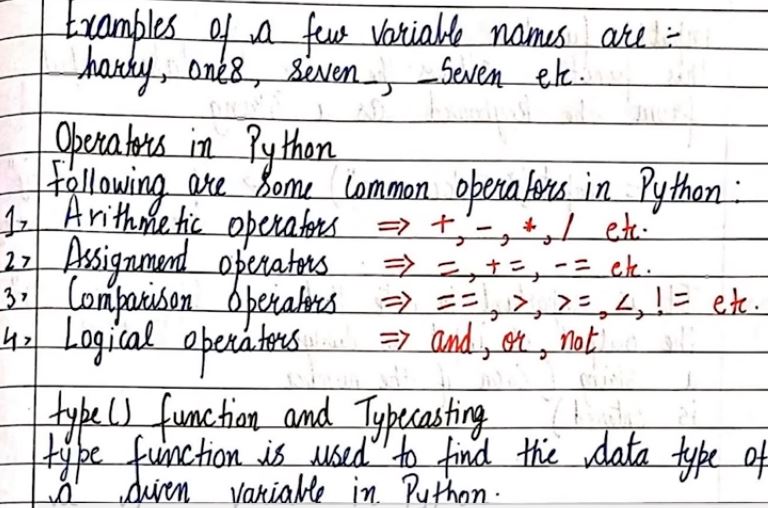 Examples of a few variable names are :-
harry, one8, seven_, _Seven etc.
Operators in Python
Following are some common operators in Python:
1> Arithmetic operators => +, -, *, / etc.
2> Assignment operators => =, +=, -= etc.
3> Comparison operators => ==, >, >=, <, != etc.
4> Logical operators => and, or, not
type() function and Typecasting
type function is used to find the data type of
a given variable in Python.